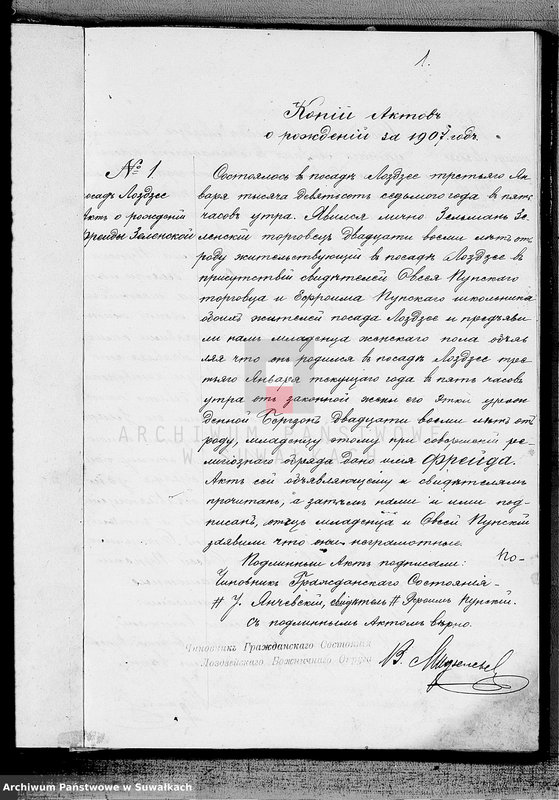 1.
Копiй Актовъ
о рожденiй за 1907 годъ.
№ 1
посадъ Лоздзее
Актъ о рожденiй
Фрейды Зеленской
Состоялось въ посадѣ Лоздзее третьяго Ян-
варя тысяча девятьсотъ седьмого года въ пять
часовъ утра. Явился лично Зельманъ Зе-
ленскiй торговецъ двадцати восьми лѣтъ отъ
роду жительствующiй въ посадѣ Лоздзее въ
присутствiй свидѣтелей Овсея Пупскаго
торговца и Ефроима Пупскаго школьника
обоихъ жителей посада Лоздзее и предъяви-
ли намъ младенца женскаго пола объяв-
ляя что онъ родился въ посадѣ Лоздзее тре-
тьяго Января текущаго года въ пять часовъ
утра отъ законной жены его Этки урож-
денной двадцати восьми лѣтъ отъ
роду, младенцу этому при совершенiй ре-
лигiознаго обряда дано имя Фрейда.
Актъ сей объявляющему и свидѣтелямъ
прочитанъ, а затѣмъ нами и ими под-
писанъ, отецъ младенца и Овсей Пупскiй
заявили что они неграмотные.
Подлинный Актъ подписали:
Чиновникъ Гражданскаго Состоянiя
Янчевскiй, свидѣтель Пупскiй.
Съ подлиннымъ Актомъ вѣрно.
Чиновникъ Гражданскаго Состоянiя
Лоздзейскаго Божничнаго Округа
ARCHIWUM PAŃSTWOWE
W SUWAŁKACH
Archiwum Państwowe w Suwałkach